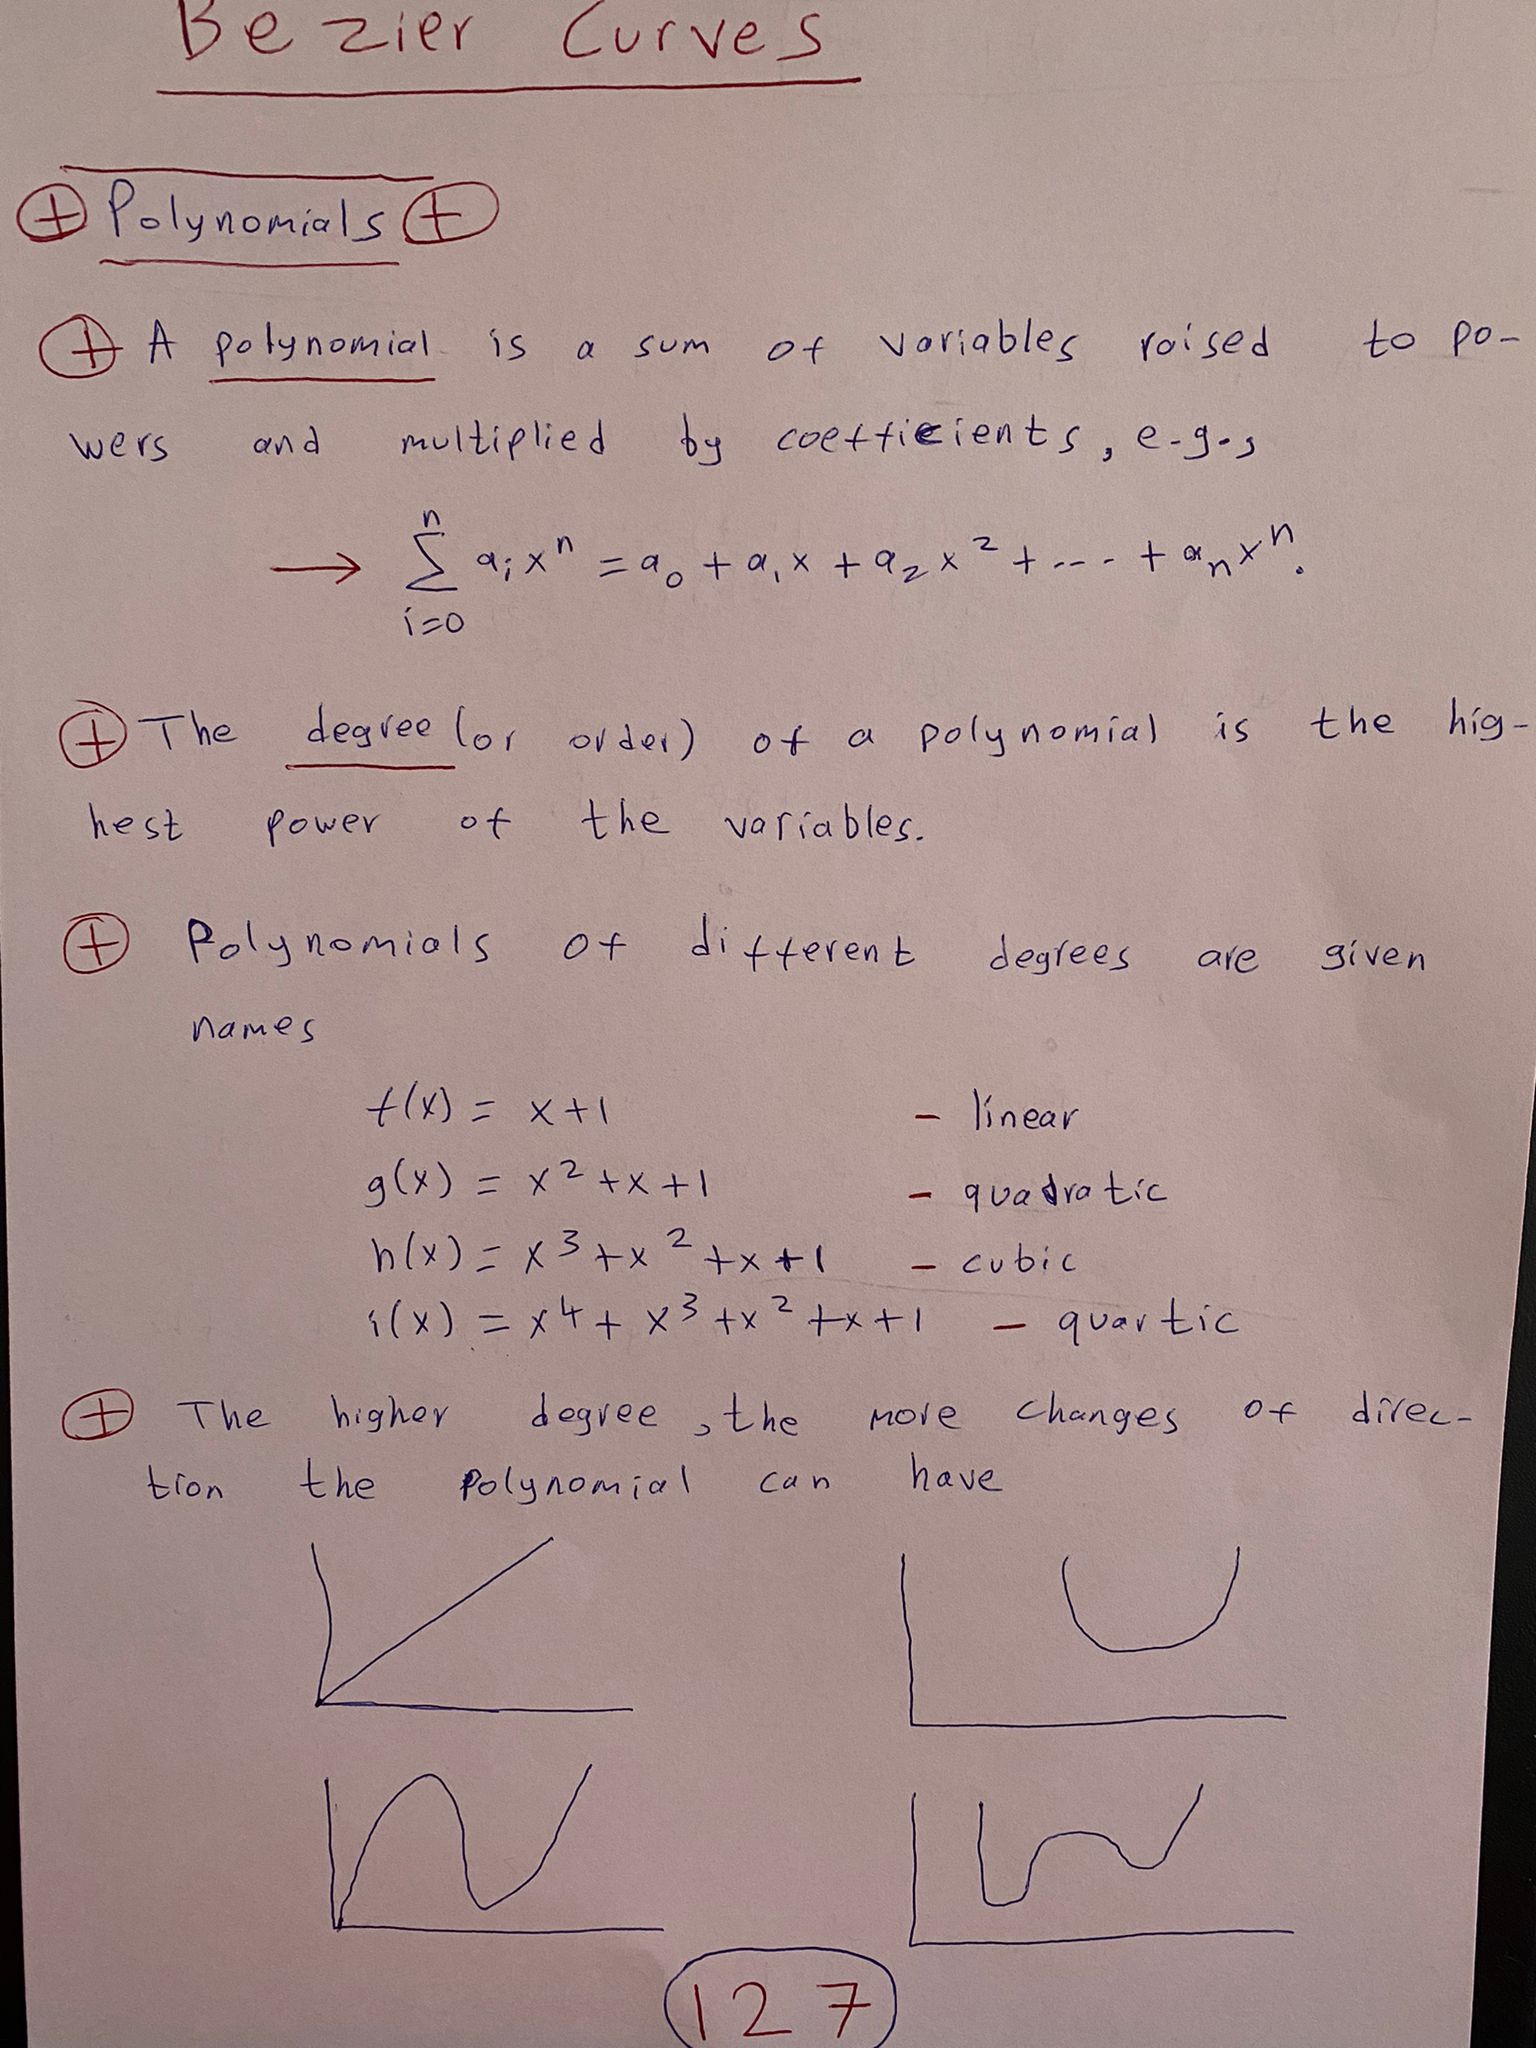 Bezier Curves
⊕ Polynomials ⊕
⊕ A polynomial is a sum of variables raised to po-
wers and multiplied by coefficients, e.g.,
→ \sum_{i=0}^{n} a_i x^n = a_0 + a_1 x + a_2 x^2 + ---- + a_n x^n.
⊕ The degree (or order) of a polynomial is the hig-
hest power of the variables.
⊕ Polynomials of different degrees are given
names
f(x) = x+1 - linear
g(x) = x² + x + 1 - quadratic
h(x) = x³ + x² + x + 1 - cubic
i(x) = x⁴ + x³ + x² + x + 1 - quartic
⊕ The higher degree, the more changes of direc-
tion the polynomial can have
127